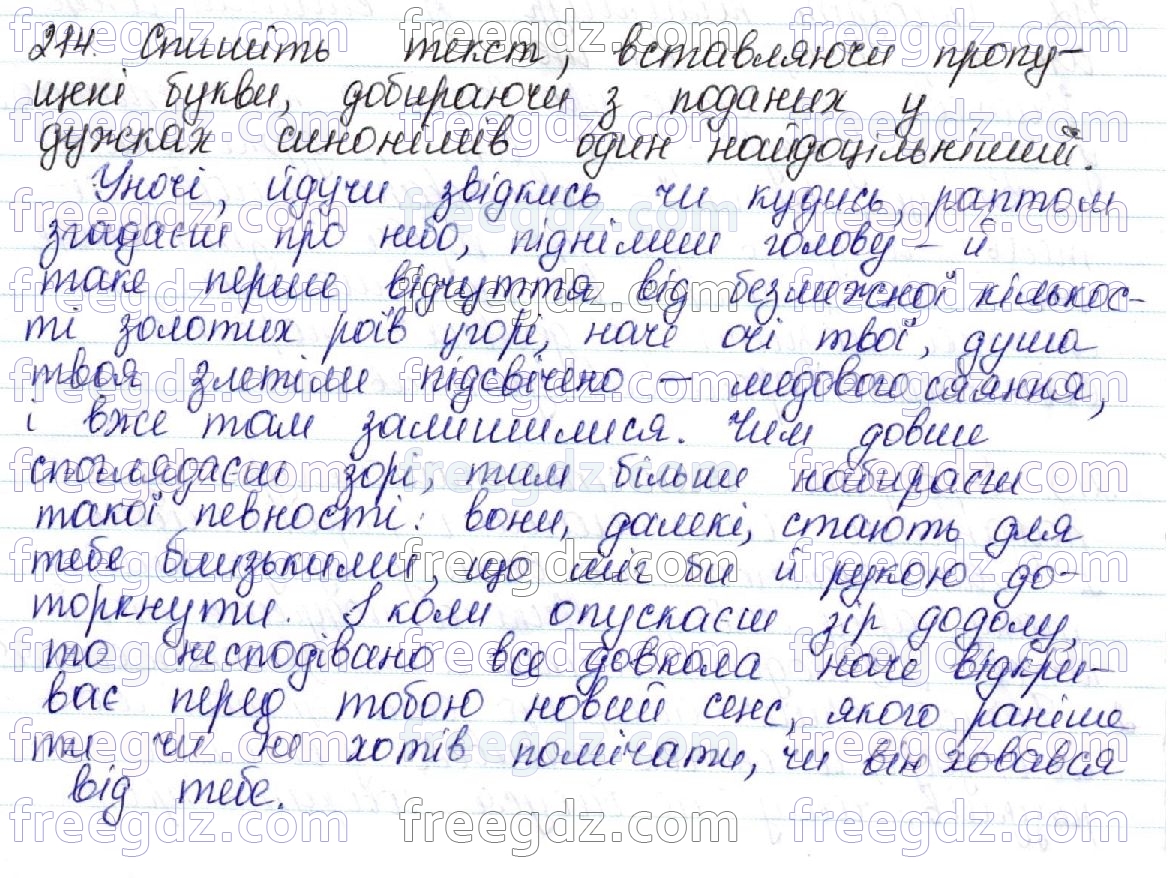 214. Спишіть текст, вставляючи пропу-
щені букви, добираючи з поданих у
дужках синонімів один найдоцільніший.
Уночі, йдучи звідкись чи кудись, раптом
згадаєш про небо, піднімеш голову – й
таке перше відчуття від безмежної кількос-
ті золотих роїв угорі, наче очі твої, душа
твоя злетіли підсвічено – медового сяяння,
і вже там залишилися. Чим довше
споглядаєш зорі, тим більше набираєш
такої певності: вони, далекі, стають для
тебе близькими, що міг би й рукою до-
торкнути. І коли опускаєш зір додолу,
то несподівано все довкола наче відкри-
ває перед тобою новий сенс, якого раніше
ти чи не хотів помічати, чи він ховався
від тебе.